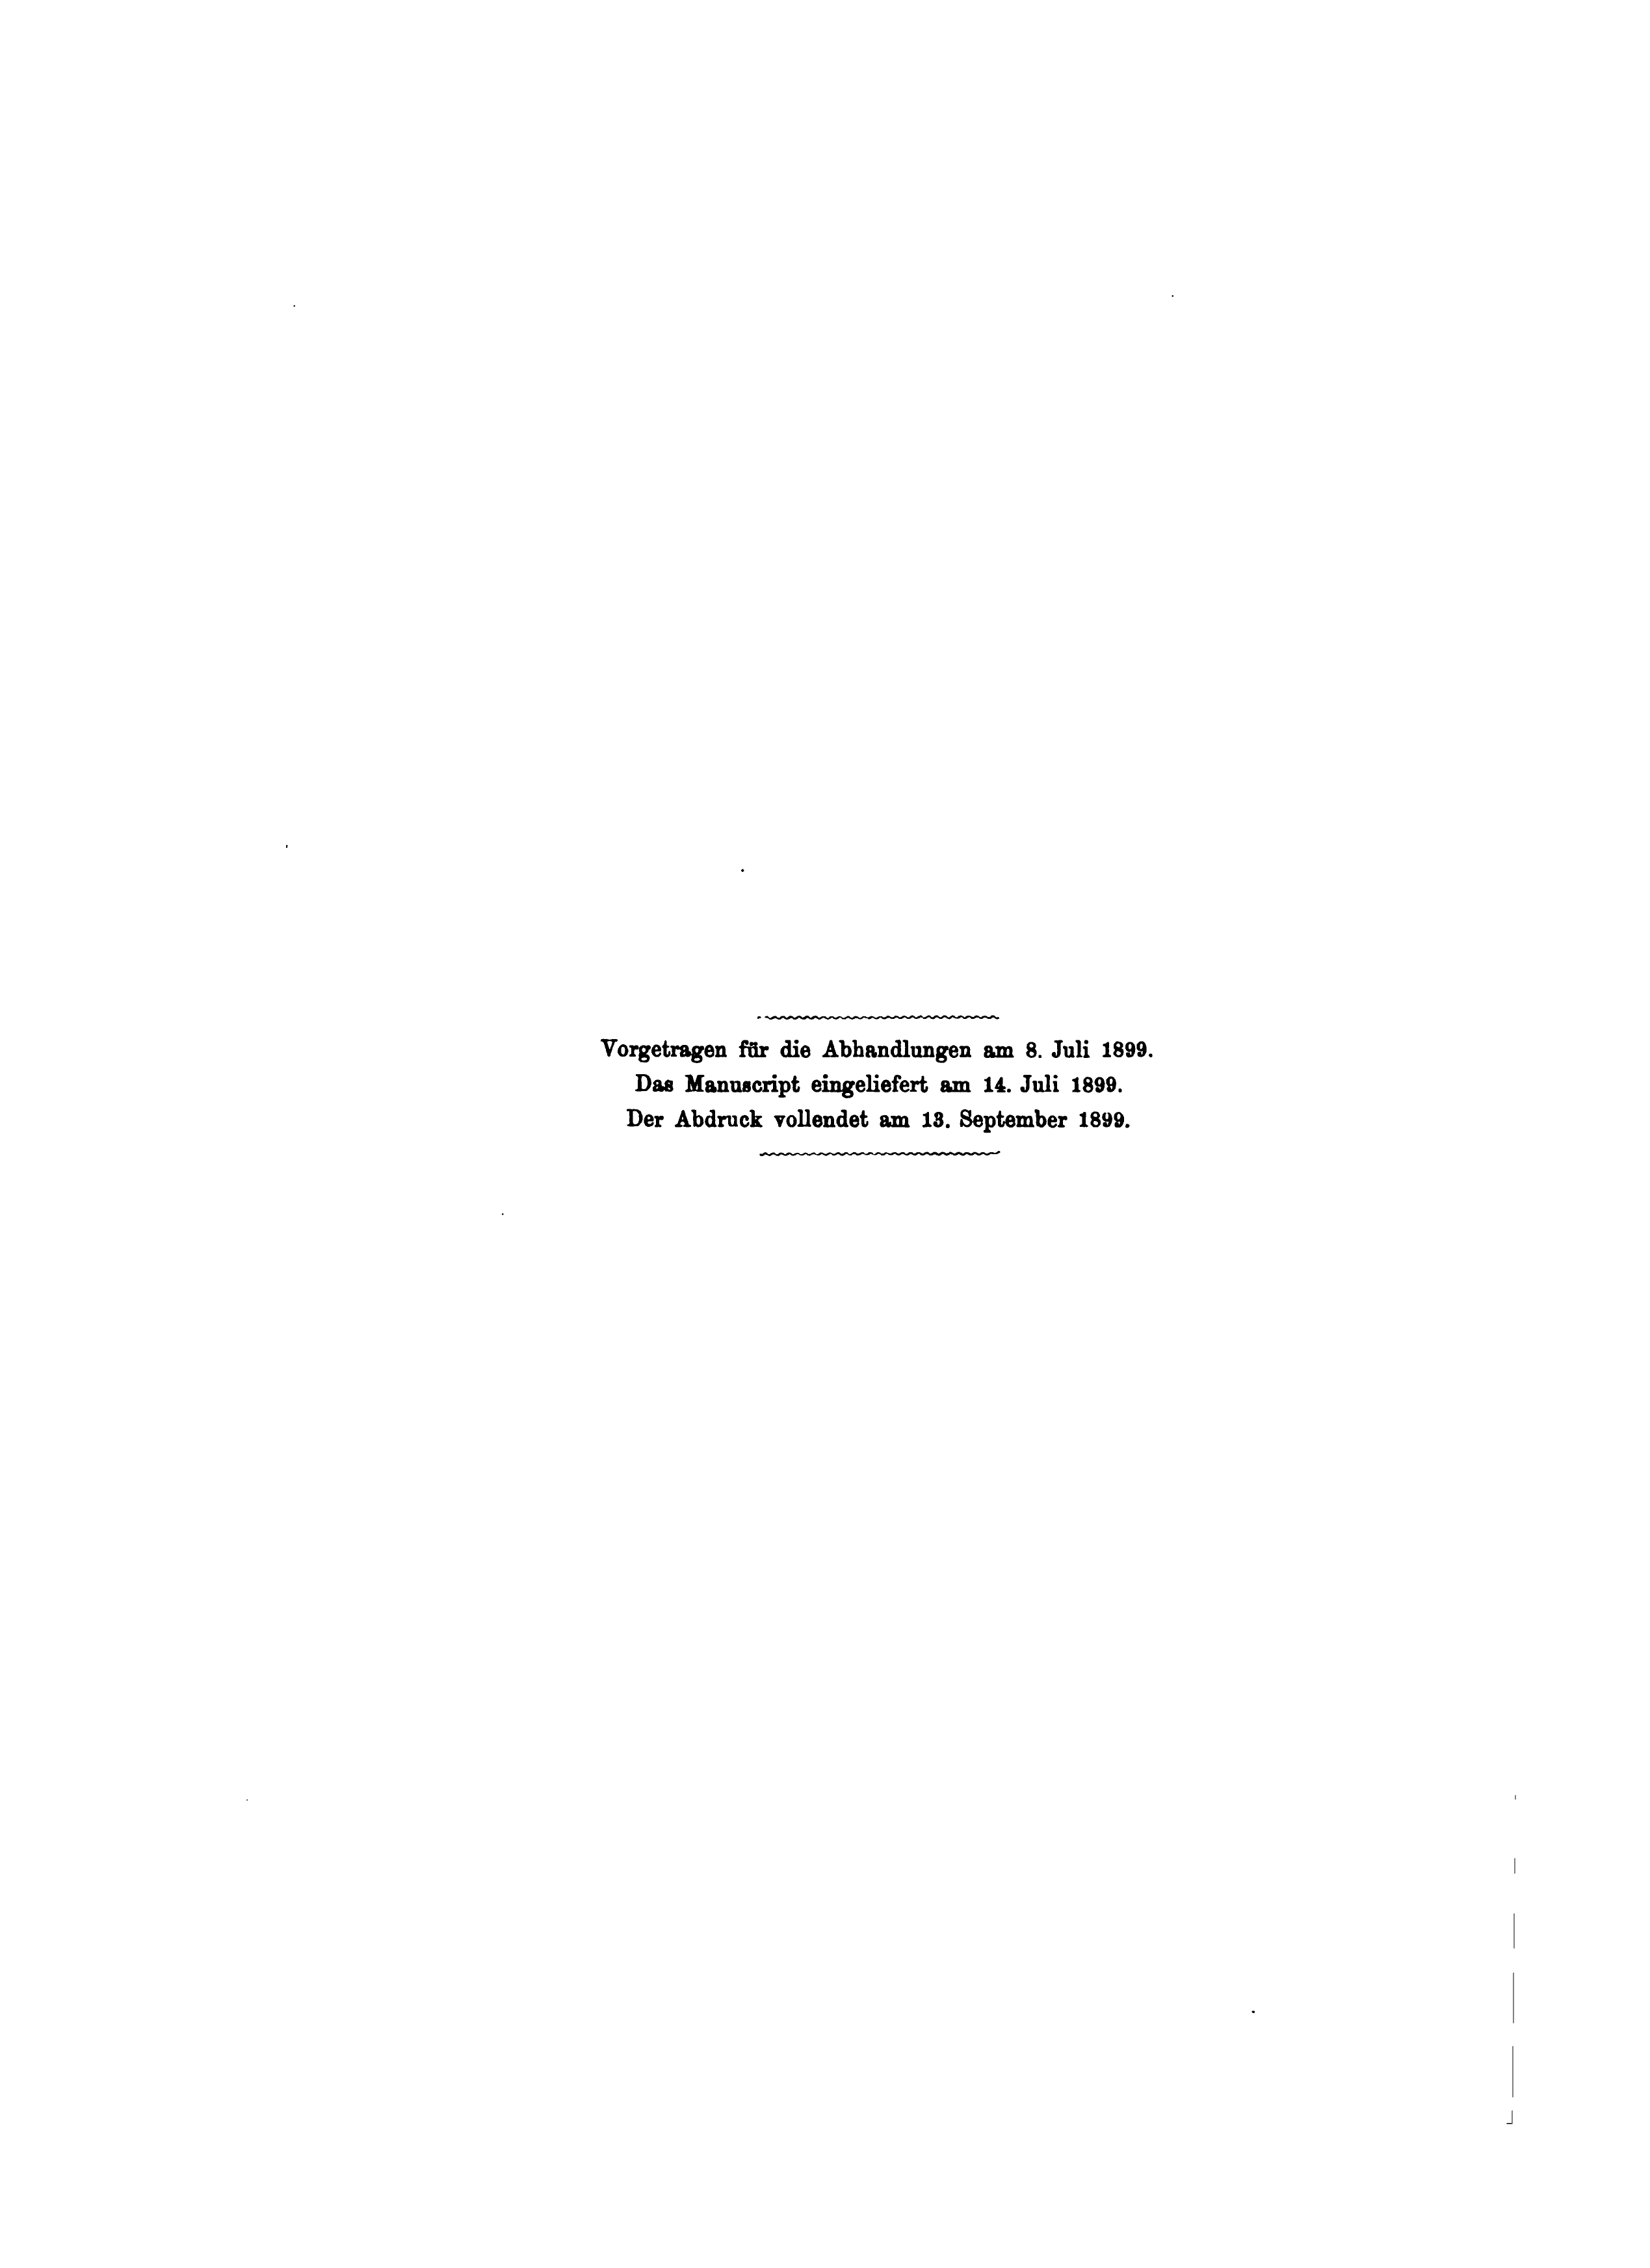 Vorgetragen für die Abhandlungen am 8. Juli 1899.
Das Manuscript eingeliefert am 14. Juli 1899.
Der Abdruck vollendet am 13. September 1899.